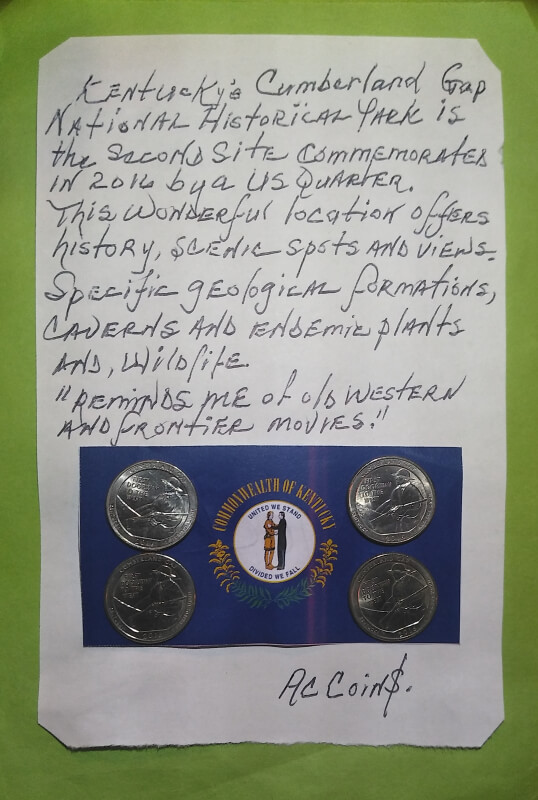 KENTUCKY's Cumberland Gap
NATIONAL HISTORICAL PARK is
the SECOND SITE COMMEMORATED
IN 2016 by a US QUARTER.
This WONDERFUL location offERS
history, SCENIC spots AND VIEWS.
Specific geological formations,
CAVERNS AND ENDEMIC plants
AND, Wildlife.
"REMINDS ME of old WESTERN
AND FRONTIER MOVIES."
COMMONWEALTH OF KENTUCKY
UNITED WE STAND
DIVIDED WE FALL
FIRST
DOORWAY
TO THE
WEST
FIRST
DOORWAY
TO THE
WEST
AC COIN$.